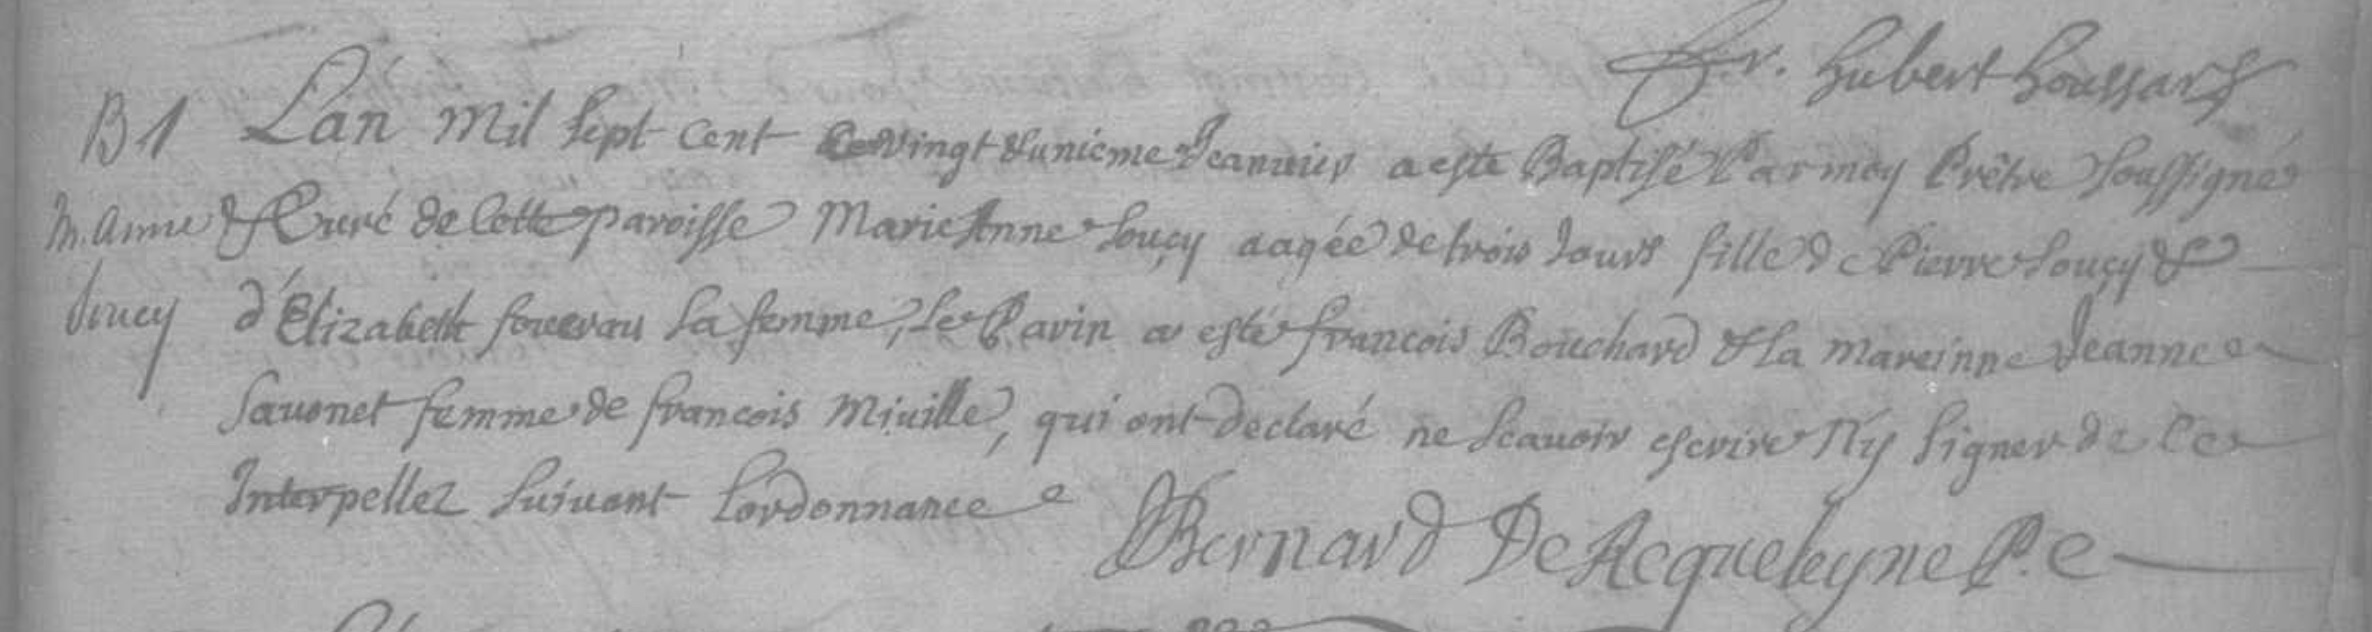 fr. hubert houssart
B 1 Lan mil sept cent le vingt & unieme Jeanvier a esté Baptisé Par moy Prêtre soussigné
M. Anne & Curé de cette paroisse Marie Anne Souçy aagée de trois Jours fille de Pierre Souçy &
Soucy d'Elizabeth foucrau sa femme, le Parin a esté francois Bouchard & la mareinne Jeanne
Sauonet femme de francois Miuille, qui ont declaré ne scauoir escrire Ny signer de ce
Interpellez suiuant Lordonnance
Bernard De Requeleyne P. C